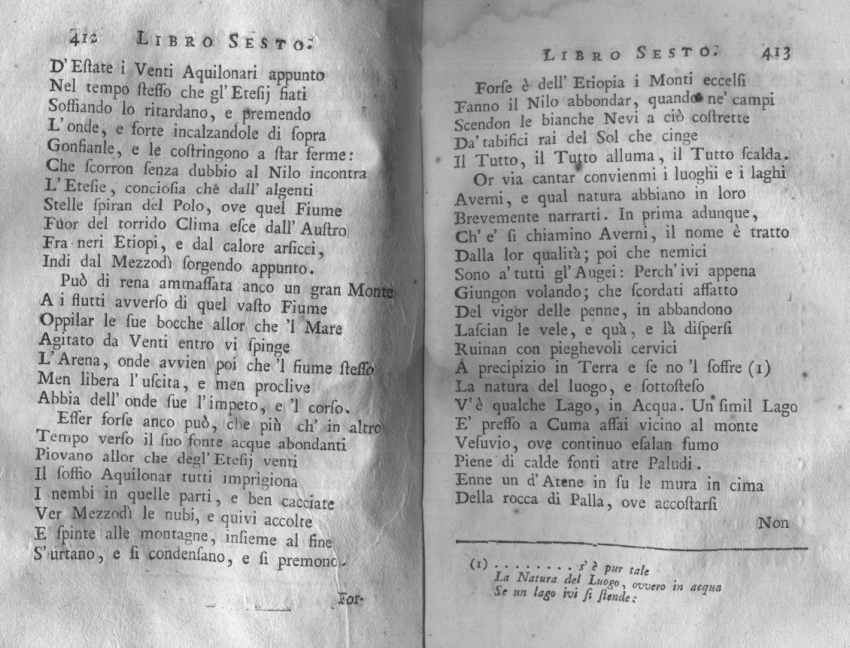 412 LIBRO SESTO.
D'Eſtate i Venti Aquilonari appunto
Nel tempo ſteſſo che gl'Eteſij fiati
Soffiando lo ritardano, e premendo
L'onde, e forte incalzandole di ſopra
Gonfianle, e le coſtringono a ſtar ferme:
Che ſcorron ſenza dubbio al Nilo incontra
L'Eteſie, concioſia chè dall' algenti
Stelle ſpiran del Polo, ove quel Fiume
Fuor del torrido Clima eſce dall' Auſtro
Fra neri Etiopi, e dal calore arſicci,
Indi dal Mezzodì ſorgendo appunto.
Può di rena ammaſſata anco un gran Monte
A i flutti avverſo di quel vaſto Fiume
Oppilar le ſue bocche allor che 'l Mare
Agitato da Venti entro vi ſpinge
L'Arena, onde avvien poi che 'l fiume ſteſſo
Men libera l'uſcita, e men proclive
Abbia dell' onde ſue l'impeto, e 'l corſo.
Eſſer forſe anco può, che più ch' in altro
Tempo verſo il ſuo fonte acque abondanti
Piovano allor che degl' Eteſij venti
Il ſoffio Aquilonar tutti imprigiona
I nembi in quelle parti, e ben cacciate
Ver Mezzodì le nubi, e quivi accolte
E ſpinte alle montagne, inſieme al fine
S'urtano, e ſi condenſano, e ſi premono.
For-
LIBRO SESTO. 413
Forſe è dell' Etiopia i Monti eccelſi
Fanno il Nilo abbondar, quando ne' campi
Scendon le bianche Nevi a ciò coſtrette
Da' tabifici rai del Sol che cinge
Il Tutto, il Tutto alluma, il Tutto ſcalda.
Or via cantar convienmi i luoghi e i laghi
Averni, e qual natura abbiano in loro
Brevemente narrarti. In prima adunque,
Ch' e' ſi chiamino Averni, il nome è tratto
Dalla lor qualità; poi che nemici
Sono a' tutti gl'Augei: Perch' ivi appena
Giungon volando; che ſcordati affatto
Del vigòr delle penne, in abbandono
Laſcian le vele, e quà, e là diſperſi
Ruinan con pieghevoli cervici
A precipizio in Terra e ſe no 'l ſoffre (1)
La natura del luogo, e ſottoſteſo
V'è qualche Lago, in Acqua. Un ſimil Lago
E' preſſo a Cuma aſſai vicino al monte
Veſuvio, ove continuo eſalan fumo
Piene di calde fonti atre Paludi.
Enne un d'Atene in ſu le mura in cima
Della rocca di Palla, ove accoſtarſi
Non
(1) . . . . . . . . s' è pur tale
La Natura del Luogo, ovvero in acqua
Se un lago ivi ſi ſtende: